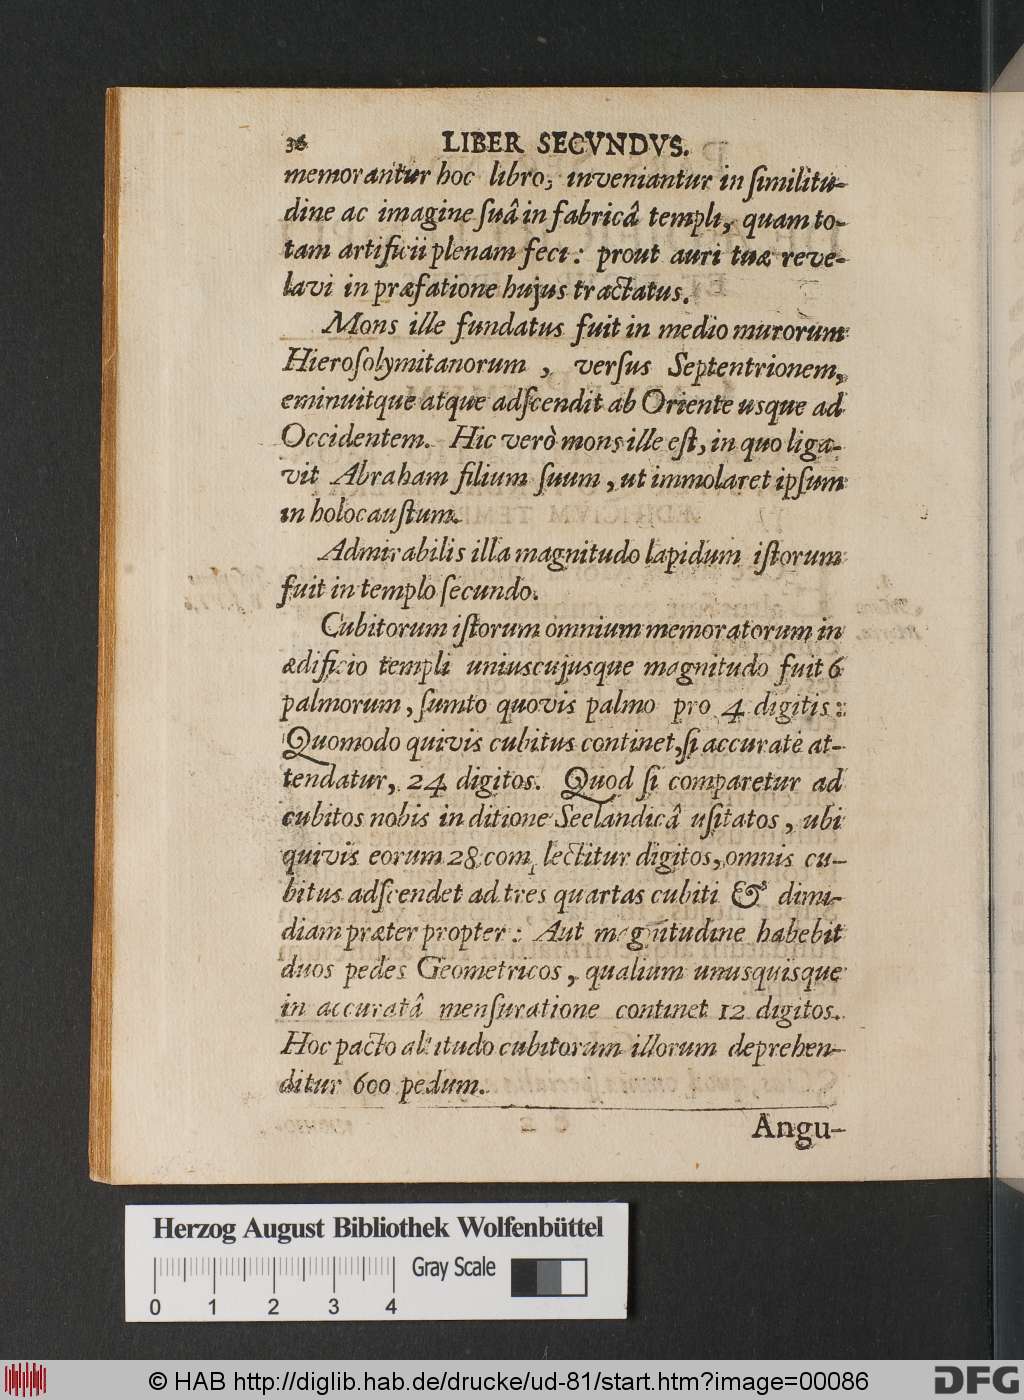 36 LIBER SECVNDVS.
memorantur hoc libro, inveniantur in ſimilitu-
dine ac imagine ſuâ in fabricâ templi, quam to-
tam artificii plenam feci: prout auri tuæ reve-
lavi in præfatione hujus tractatus.
Mons ille fundatus fuit in medio murorum
Hieroſolymitanorum, verſus Septentrionem,
eminuitque atque adſcendit ab Oriente usque ad
Occidentem. Hic verò mons ille eſt, in quo liga-
vit Abraham filium ſuum, ut immolaret ipſum
in holocauſtum.
Admirabilis illa magnitudo lapidum iſtorum
fuit in templo ſecundo.
Cubitorum iſtorum omnium memoratorum in
ædificio templi uniuscujusque magnitudo fuit 6
palmorum, ſumto quovis palmo pro 4 digitis:
Quomodo quivis cubitus continet, ſi accuratè at-
tendatur, 24 digitos. Quod ſi comparetur ad
cubitos nobis in ditione Seelandicâ uſitatos, ubi
quivis eorum 28 complectitur digitos, omnis cu-
bitus adſcendet ad tres quartas cubiti & dimi-
diam præter propter: Aut magnitudine habebit
duos pedes Geometricos, qualium unusquisque
in accuratâ menſuratione continet 12 digitos.
Hoc pacto altitudo cubitorum illorum deprehen-
ditur 600 pedum.
Angu-
Herzog August Bibliothek Wolfenbüttel
Gray Scale
0 1 2 3 4
© HAB http://diglib.hab.de/drucke/ud-81/start.htm?image=00086
DFG